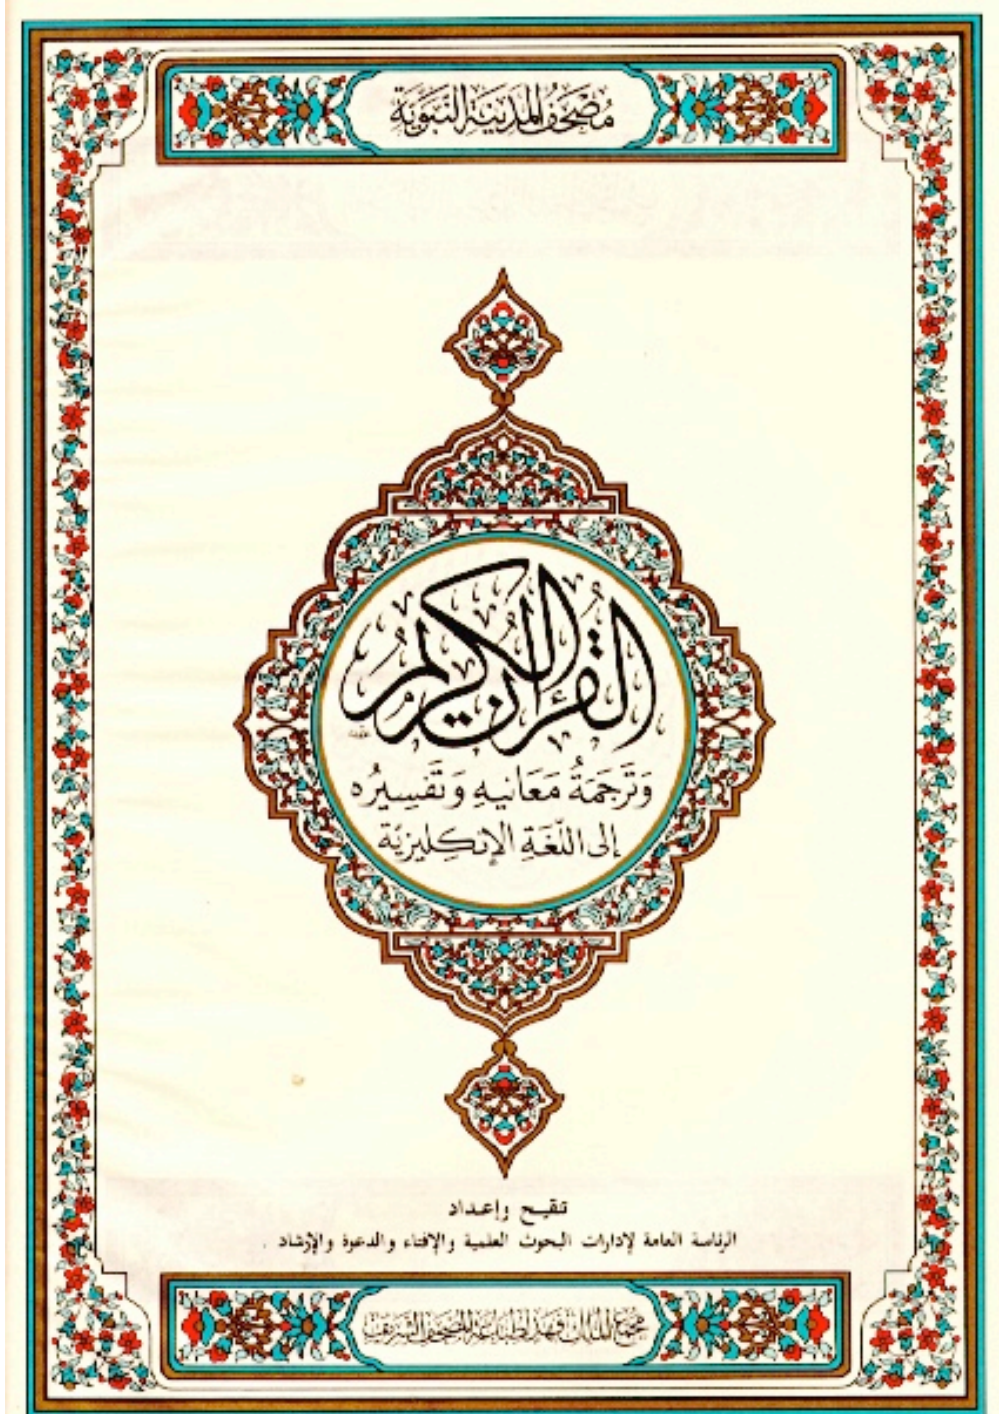 مُصْحَفُ المَدِينَةِ النَّبَوِيَّةِ
القرآن الكريم
وَتَرجَمَةُ مَعَانيهِ وَتَفسِيرُه
إلى اللّغَةِ الإنكِليزيّة
تنقيح وإعداد
الرئاسة العامة لإدارات البحوث العلمية والإفتاء والدعوة والإرشاد
مجمع الملك فهد لطباعة المصحف الشريف